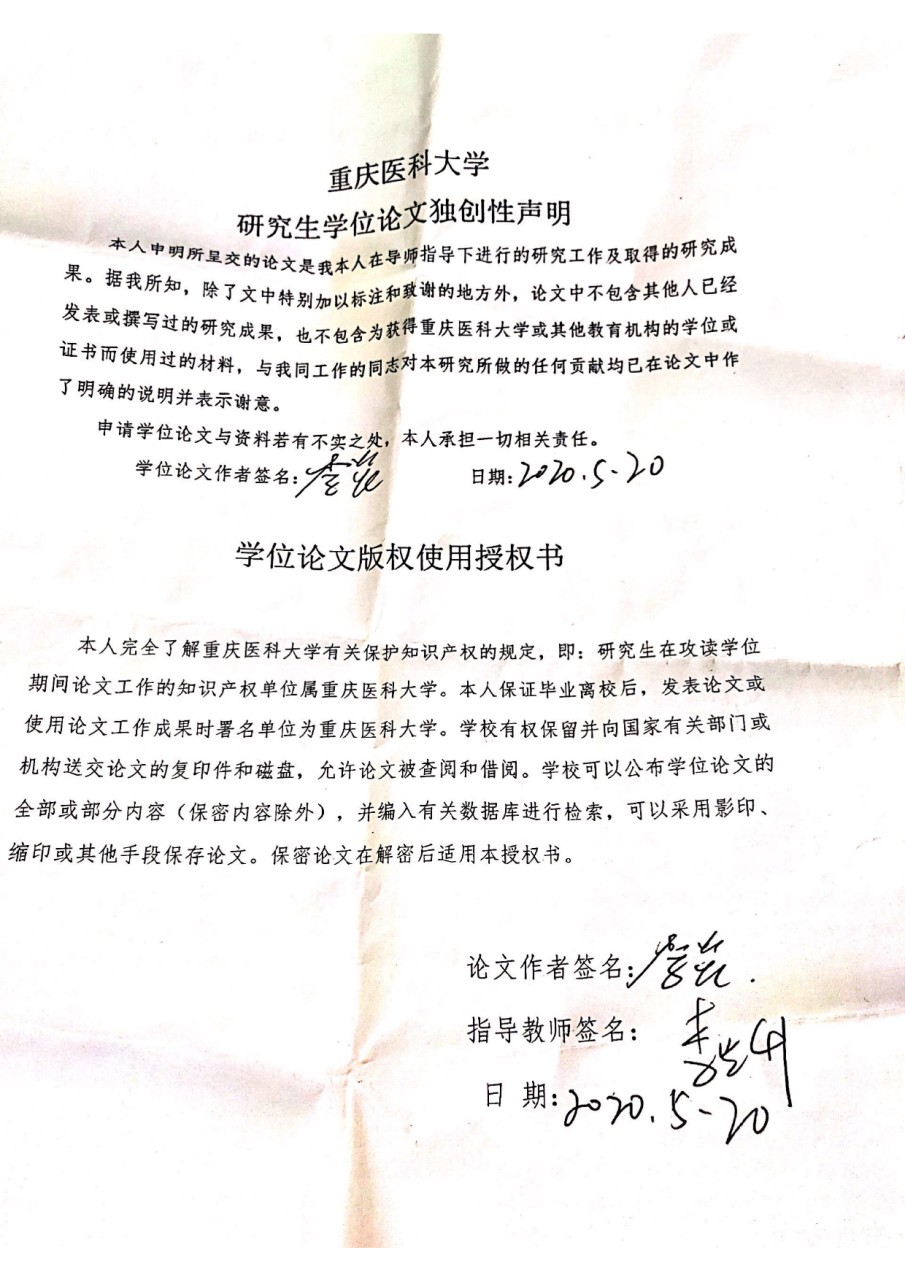 重庆医科大学
研究生学位论文独创性声明
本人申明所呈交的论文是我本人在导师指导下进行的研究工作及取得的研究成
果。据我所知，除了文中特别加以标注和致谢的地方外，论文中不包含其他人已经
发表或撰写过的研究成果，也不包含为获得重庆医科大学或其他教育机构的学位或
证书而使用过的材料，与我同工作的同志对本研究所做的任何贡献均已在论文中作
了明确的说明并表示谢意。
申请学位论文与资料若有不实之处，本人承担一切相关责任。
学位论文作者签名： 日期：2020.5-20
学位论文版权使用授权书
本人完全了解重庆医科大学有关保护知识产权的规定，即：研究生在攻读学位
期间论文工作的知识产权单位属重庆医科大学。本人保证毕业离校后，发表论文或
使用论文工作成果时署名单位为重庆医科大学。学校有权保留并向国家有关部门或
机构送交论文的复印件和磁盘，允许论文被查阅和借阅。学校可以公布学位论文的
全部或部分内容（保密内容除外），并编入有关数据库进行检索，可以采用影印、
缩印或其他手段保存论文。保密论文在解密后适用本授权书。
论文作者签名：
指导教师签名：
日 期：2020.5-20